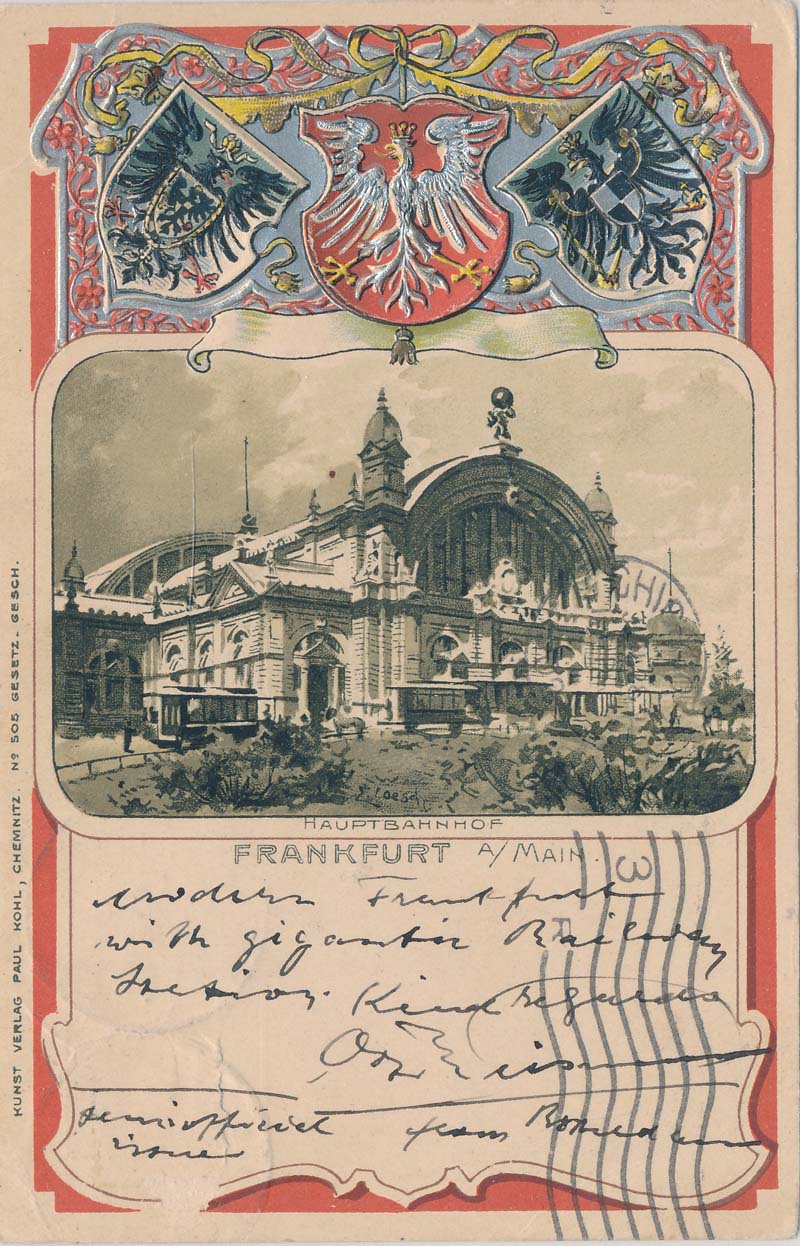 KUNST VERLAG PAUL KOHL, CHEMNITZ. Nº 505 GESETZ. GESCH.
HAUPTBAHNHOF
FRANKFURT A/MAIN.
Modern Frankfurt
with gigantic Railway
Station. Kind regards
semiofficial from
issue
3